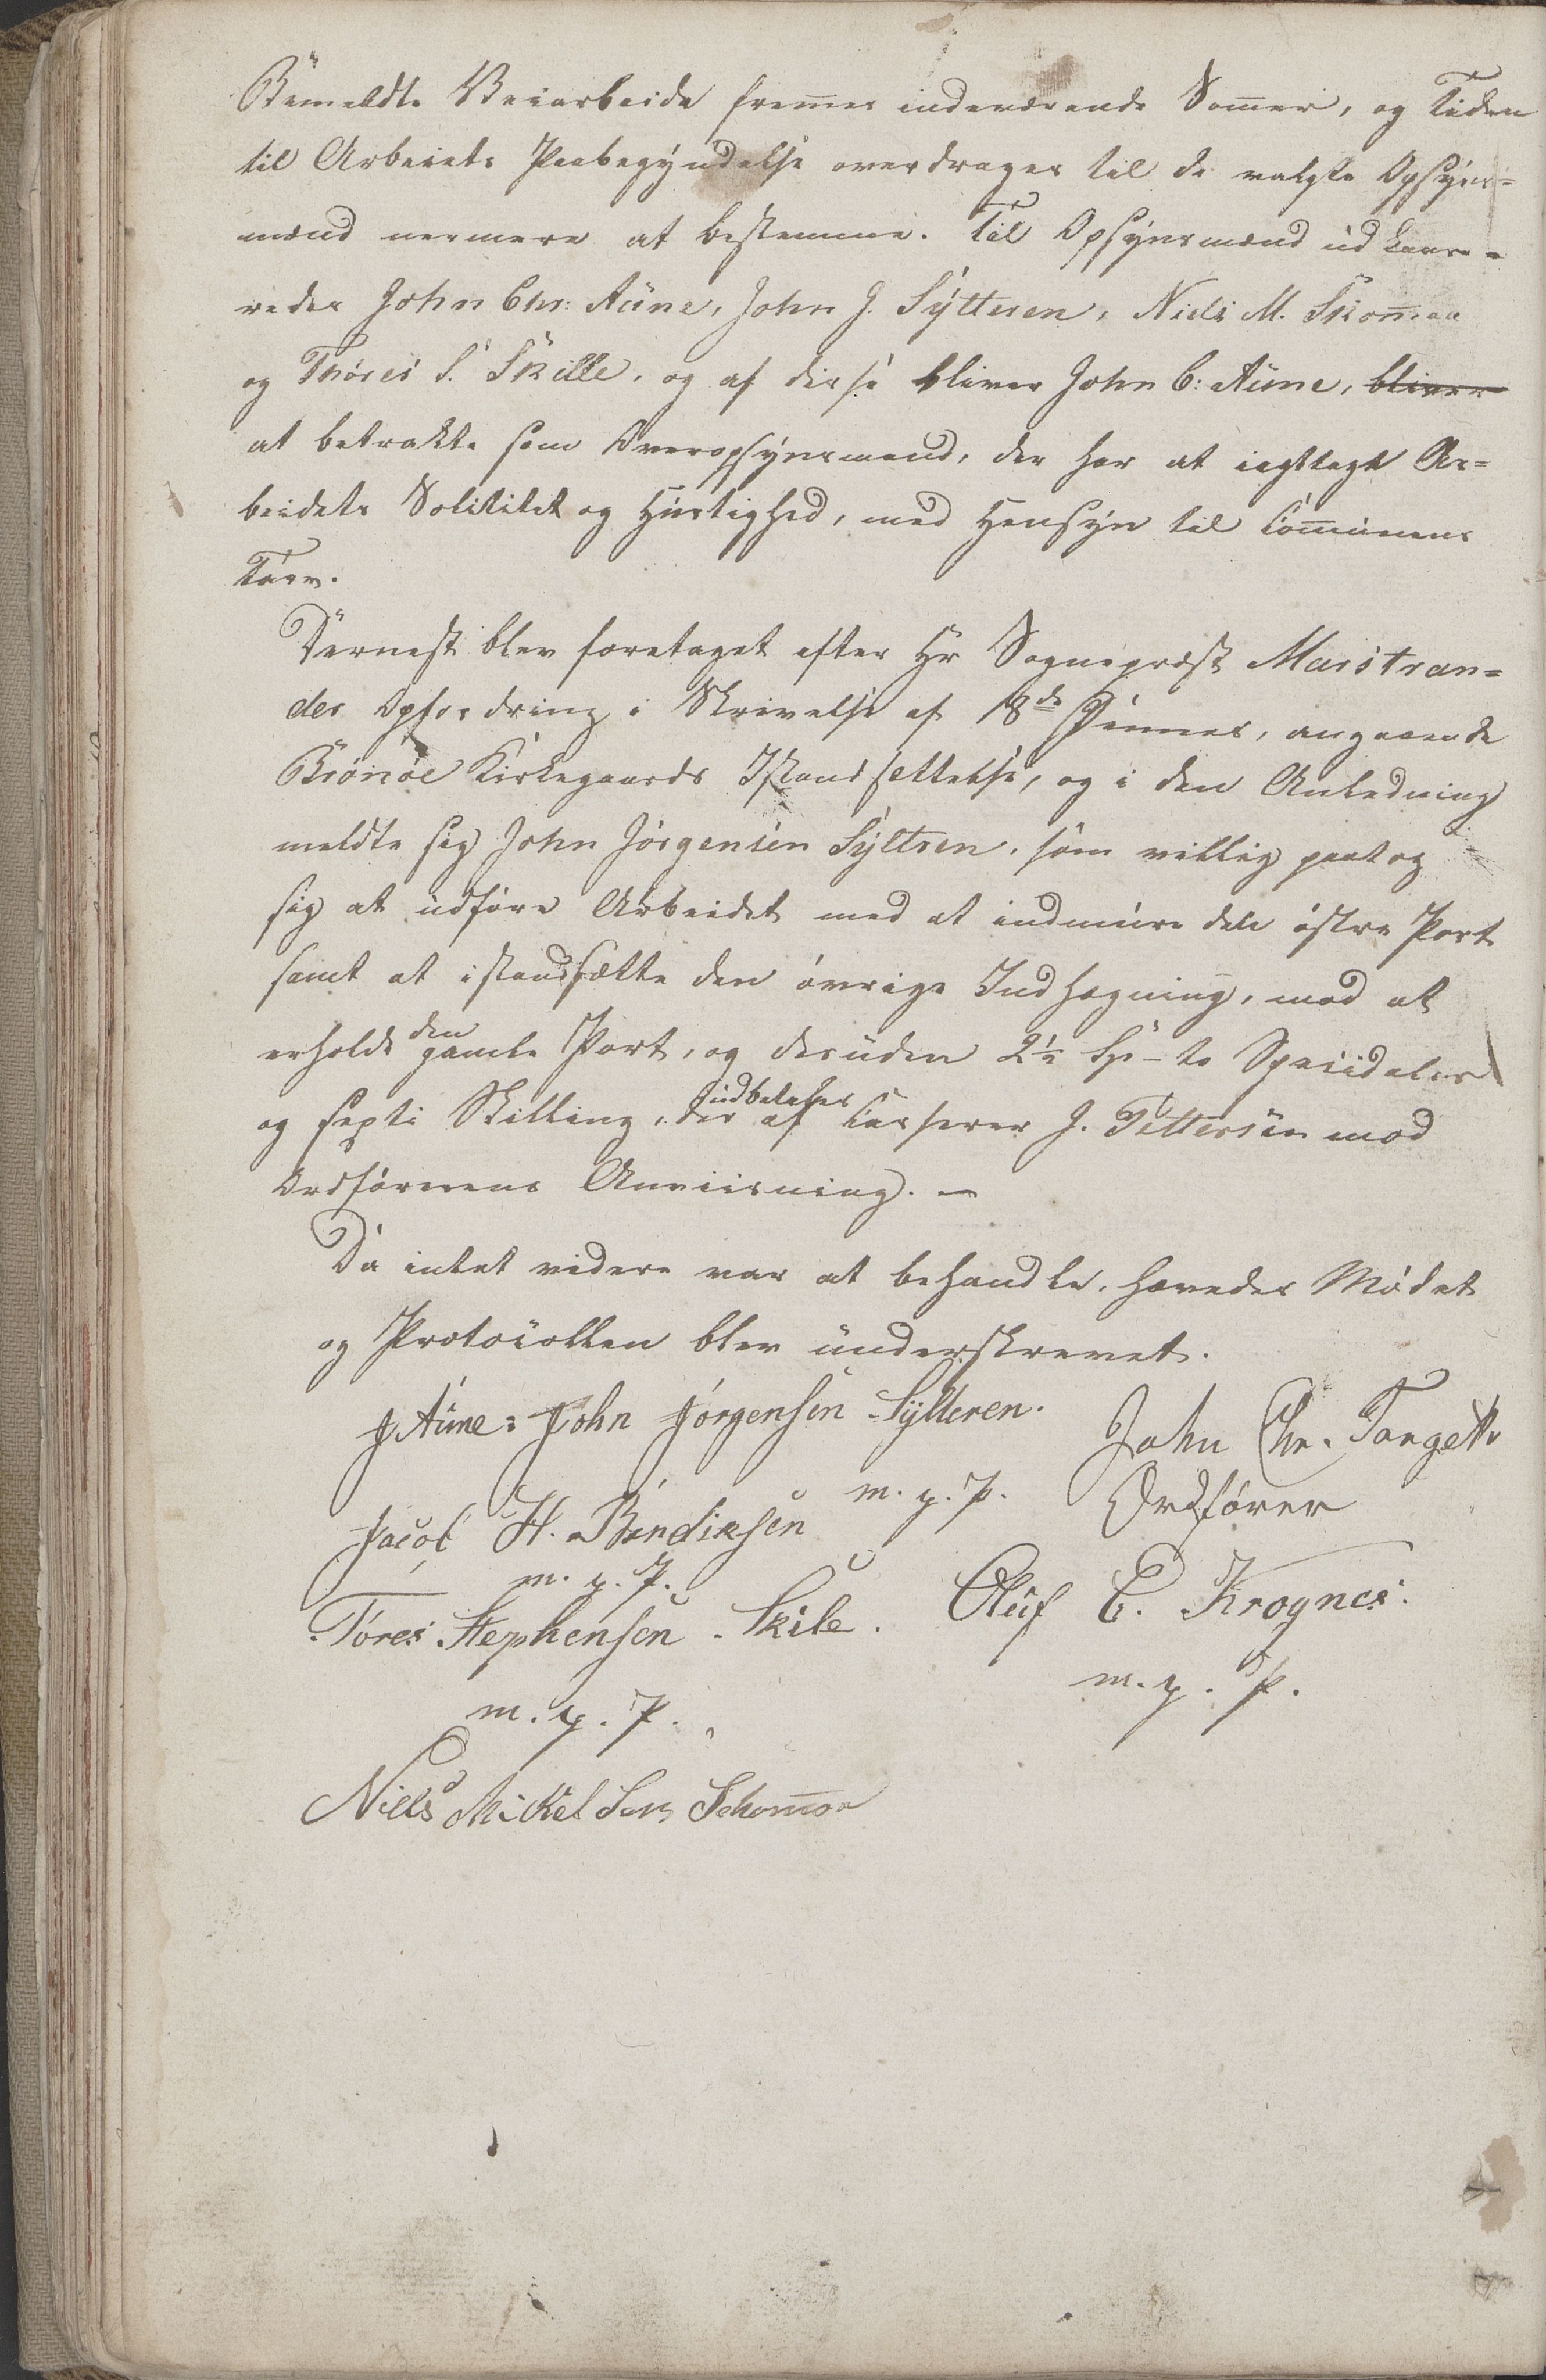 Bemeldte Veiarbeide frem̅es indeværende Som̅er, og Tiden
til Arbeiets Paabegyndelse overdrages til de valgte Opsyns=
mænd nermere at bestemme. Til Opsynsmænd udkaare-
redes John Chr: Aune, John J. Sylteren, Niels M. Skom̅oa
og Thøres S. Skille, og af disse bliver John C: Aune, bliver
at betrakte som Overopsynsmand, der har at iagttage Ar=
beidets Solititet og Hurtighed, med Hensyn til Com̅unens
Tarv.
Dernest blev foretaget efter Hr Sognepræst Marstran=
des Opfordring i Skrivelse af 18de Dennes, angaaende
Brønøe Kirkegaards Istandsættelse, og i den Anledning
meldte sig John Jørgensen Syltren, som villig paatog
sig at udføre Arbeidet med at indmure den østre Port
samt at istandsætte den øvrige Indhegning, mod at
erholde den gamle Port, og desuden 2½ Sp - to Speciedaler
og sexti Skilling, der udbetales af Casserer J. Pettersen mod
Ordførerens Anviisning. -
Da intet videre var at behandle, hævedes Mødet
og Protocollen blev underskrevet.
J Aune: John Jørgensen Sylteren.
m. p. P.
John Chr. Torgetti
Ordfører
Jacob H. Bendiksen
m. p. P.
Tøres Stephensen Skile.
m. p. P.
Oluf C. Krognes.
m. p. P.
Niells Mikel Sen Schom̅oa